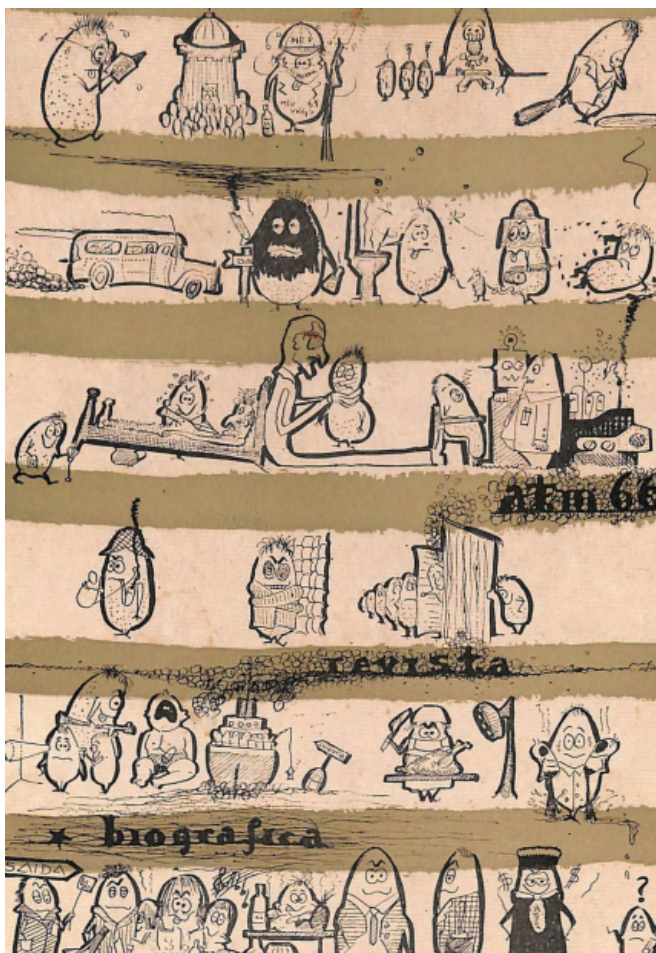 atm 66
revista
biografica
SAIDA
?